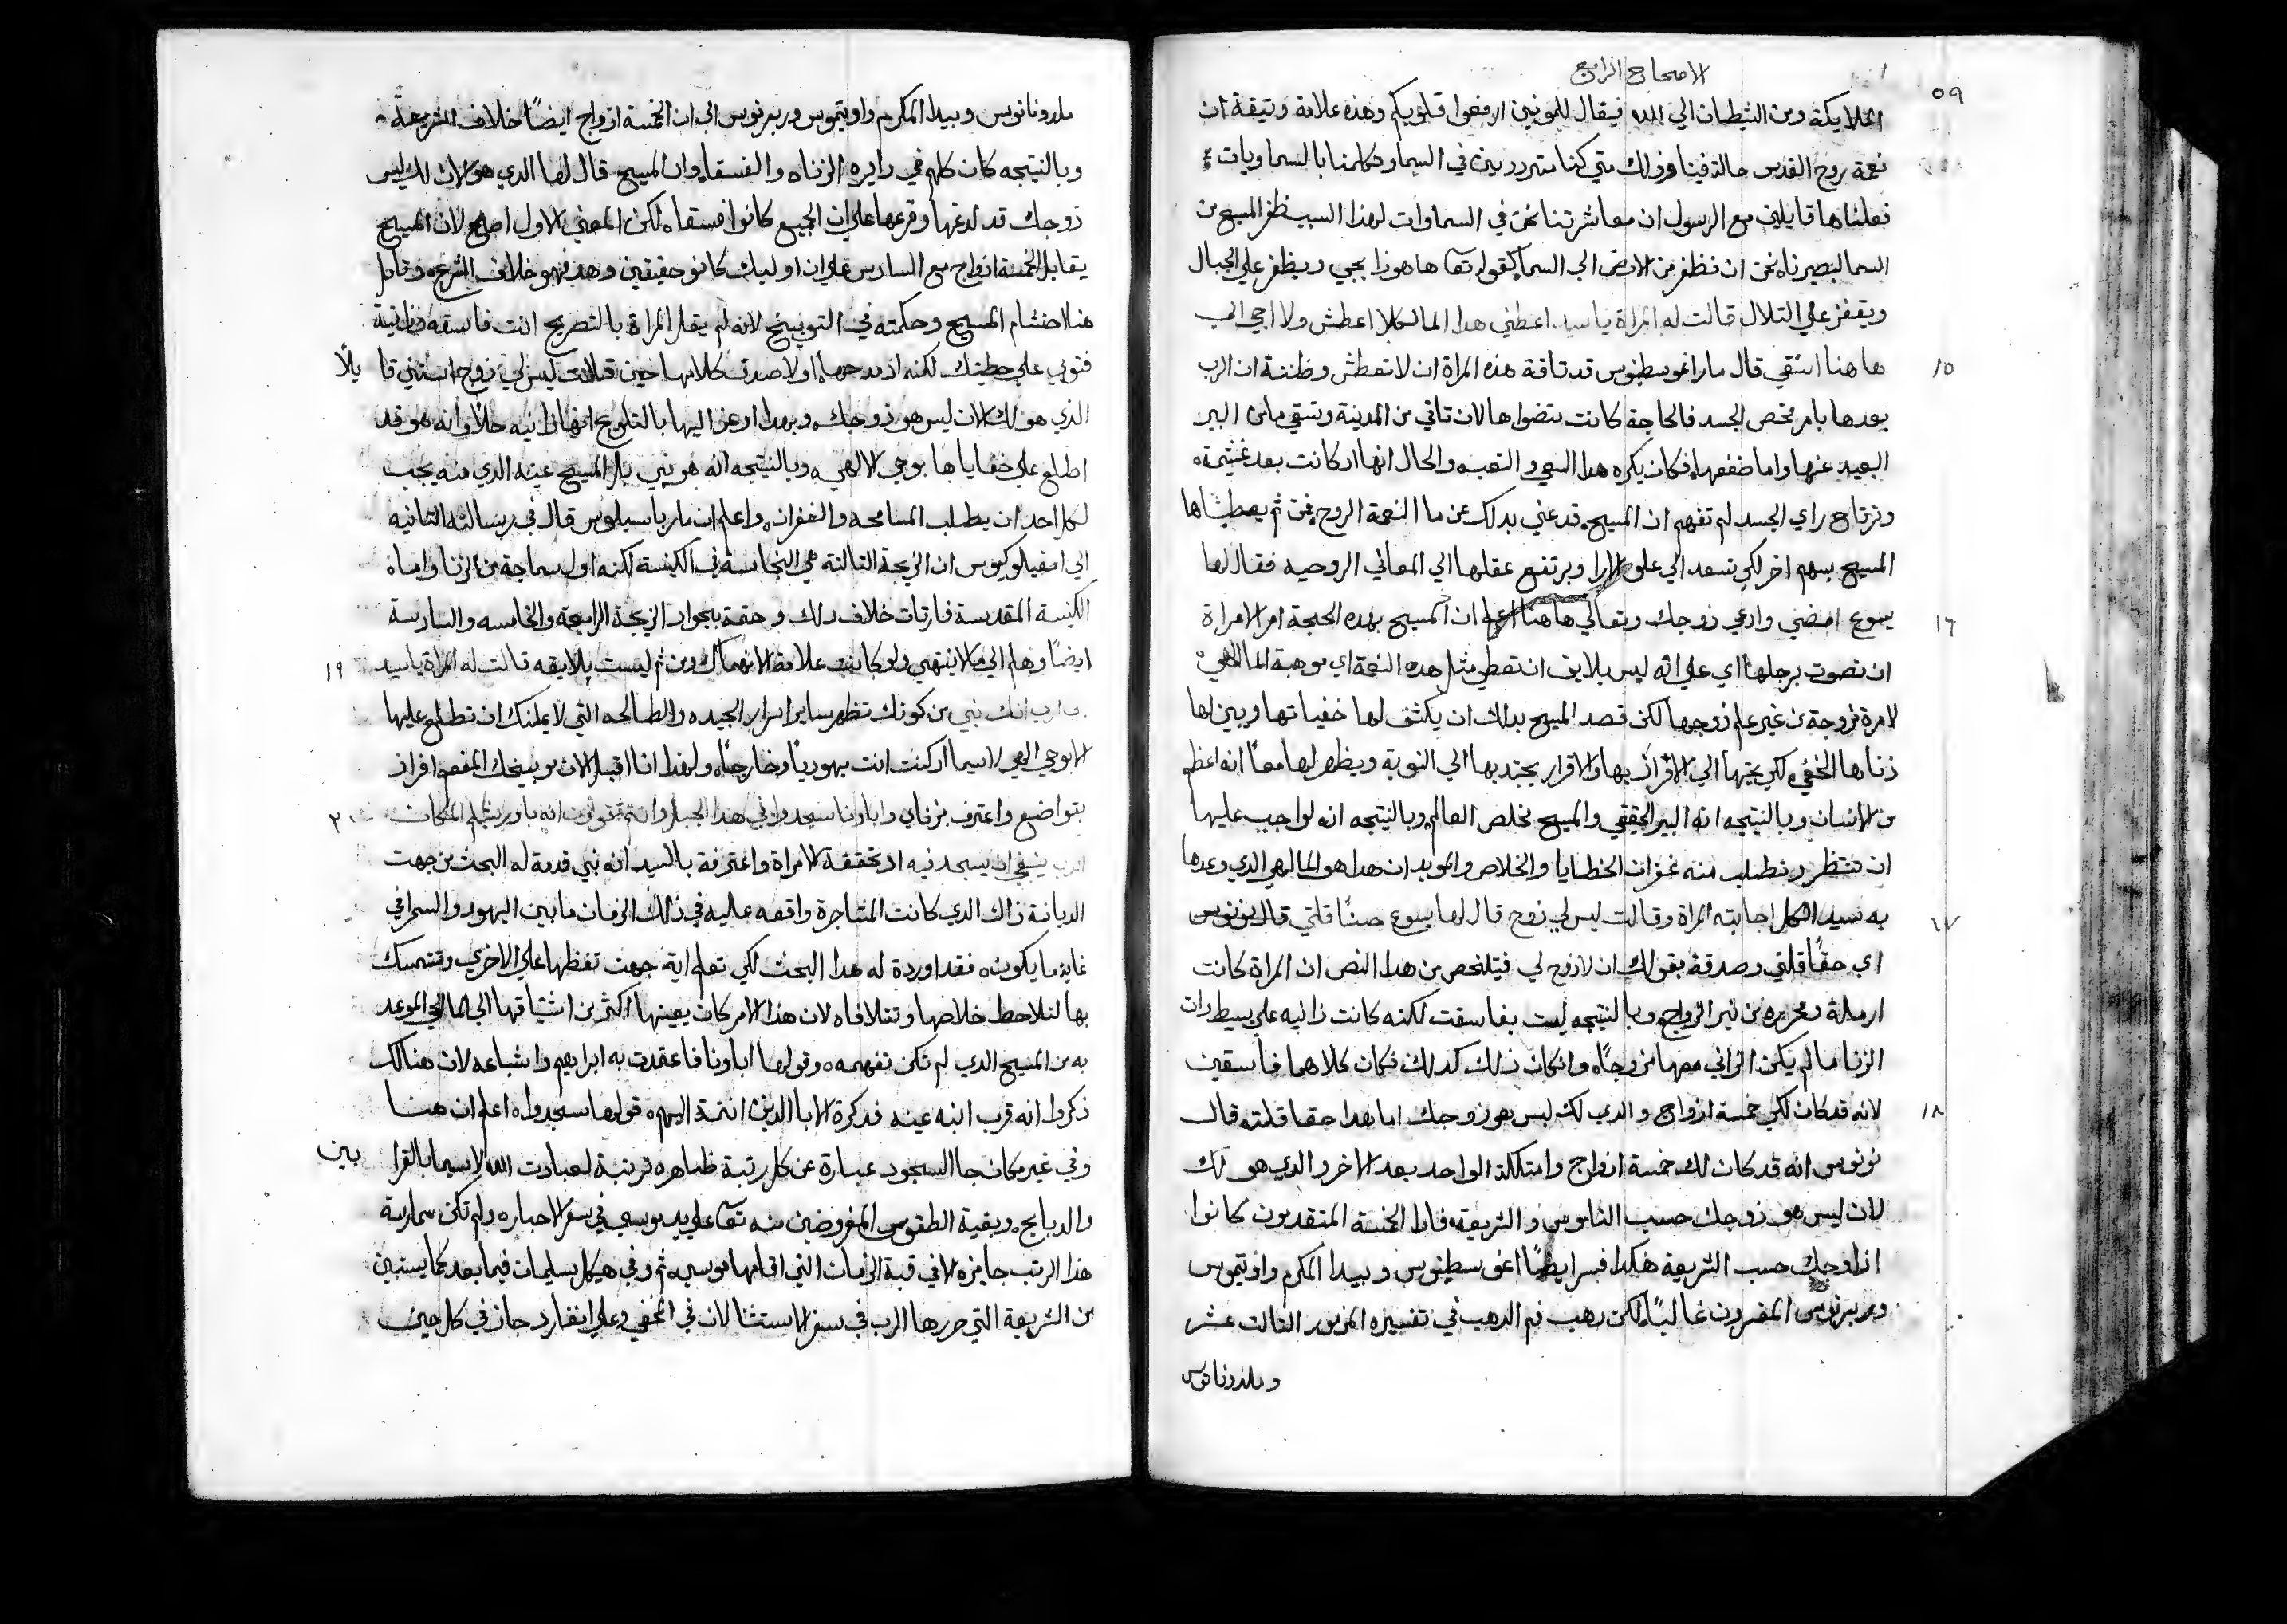 الاصحاح الرابع
٥٩
الملايكة ومن الشيطان الي الله فيقال للمونين ارفعوا قلوبكم وهذه علامة وتيقة ان
نعمة روح القدس حالة فينا وذلك متي كنا مترددين في السما ومكلمنا بالسماويات
نعلناها قايلين مع الرسول ان معاشرتنا نحن في السماوات لهذا السبب ظفر المسيح من
السما ليصيرناه نحن ان نظفر من الارض الي السما كقوله تعا هاهوذا يجي ويظفر علي الجبال
ويقفز علي التلال قالت له المراة ياسيد اعطني هدا الما لكلا اعطش ولا اجي الي
١٥ هاهنا استقي قال مار اغوسطينوس قد تاقة هذه المراة ان لا تعطش وظننة ان الرب
يوعدها بامر مخص الجسد فالحاجة كانت تضوا ها لان تاتي من المدينة وتستقي ما من البير
البعيد عنها واما ضعفها فكان يكره هدا السعي والتعب والحال انها اد كانت بعد غشيمة
وترتاح راي الجسد لم تفهم ان المسيح قد عني بدلك عن ما النعمة الروحية فمن ثم يعطيناها
المسيح بسهم اخر لكي تسعد الي علو الارا ويرتفع عقلها الي المعاني الروحيه فقال لها
١٦ يسوع امضي وادعي زوجك وتعالي هاهنا اعلم ان المسيح بهده الحجة امر الامراة
ان تصوت برجلها اي علي انه ليس بلايق ان تعطي متل هده النعمة اي موهبة الما الالهي
لامرة مزوجة من غير علم زوجها لكن قصد المسيح بدلك ان يكشف لها خفياتها ويبين لها
زناها الخفي لكي يحتها الي الاقرار بها والاقرار يجتدبها الي التوبة ويظهر لها معا انه اعظم
من الانسان وبالنتيجه انه البير الحقيقي والمسيح مخلص العالم وبالنتيجه انه لواجب عليها
ان تنتظر وتطلب منه غفران الخطايا والخلاص والموبد ان هدا هو الما الهي الدي وعدها
١٧ به سيد الكل اجابته المراة وقالت ليس لي زوج قال لها يسوع حسنًا قلتي قال نونوس
اي حقًا قلتي وصدقة بقولك ان لا زوج لي فيتلخص من هدا النص ان المراة كانت
ارملة ومحرره من نير الزواج وبالنتيجه ليست بفاسقت لكنه كانت زانيه علي بسيط دات
الزنا ما لم يكن الزاني معها مزوجًا وان كان ذلك كدلك فكان كلاهما فاسقين
١٨ لانه قد كان لكي خمسة ازواج والدي لك ليس هو زوجك اما هدا حقا قلته قال
نونوس انه قد كان لك خمسة ازواج وامتكلة الواحد بعد الاخر والدي هو لك
لان ليس هو زوجك حسب الناموس والشريعة فادا الخمسة المتقدمون كانوا
ازاوجك حسب الشريعة هكدا فسر ايضًا اغوسطينوس وبيدا المكرم واوتيموس
وبربرنوس المفسرون غالبًا لكن يهب فم الدهب في تفسيره المزمور التالت عشر
وملدوناتوس
ملدوناتوس وبيدا المكرم واوتيموس وبربرنوس الي ان الخمسة ازواج ايضًا خلاف الشريعة
وبالنتيجه كان كلهم في دايره الزناه والفسقا وان المسيح قال لها الدي هو الان لك ليس
زوجك قد لدغها وقرعها علي ان الجميع كانوا فسقاه لكن المعني الاول اصلح لان المسيح
يقابل الخمسة ازواج مع السادس علي ان اوليك كانو حقيقين وهدا فهو خلاف الشرع وتامل
هنا احتشام المسيح وحكمته في التوبيخ لانه لم يقل المراة بالتصريح انت فاسقه وزانية
فتوبي علي خطيتك لكنه اد مدحها اولا صدق كلامها حين قالت ليس لي زوج استتني قايلًا
الذي هو لك الان ليس هو زوجك وبهدا اوعز اليها بالتلويح انها زانيه حلا وانه هو قد
اطلع علي خفاياها بوحي الالهي وبالنتيجه انه هو نبي بل المسيح عينه الدي منه يجب
لكل احد ان يطلب المسامحه والغفران واعلم ان مار باسيليوس قال في رسالته التانيه
الي امفيلوكيوس ان الزيجة التالتة هي النجاسة في الكنيسة لكنه اول سماجة من الزنا واما
الكنيسة المقدسة فارتات خلاف دلك وحقة بجواز الزيجة الرابعة والخامسه والسادسة
١٩ ايضًا وهلم الي ما لا ينتهي ولو كانت علامة الانهماك ومن ثم ليست بلايقه قالت له المراة ياسيد
ارب انك نبي من كونك تظهر ساير اسرار الجيده والطالحه التي لا يمكنك ان تطلع عليها
الا بوحي الهي لاسيما اد كنت انت يهوديًا وخارجًا ولهدا انا اقبل الان توبيخك المفعم افراز
٢٠ بتواضع واعترف بزناي واباونا سجدوا في هدا الجبل وانتم تقولون انه باورشليم المكان
الدي ينبغي ان يسجد فيه اد تحققة الامراة واعترفة بالسيد انه نبي قدمة له البحث من جهت
الديانة ذاك الدي كانت المشاجرة واقعه عليه في ذلك الزمان ما بين اليهود والسمرا في
غاية ما يكون فقد اوردة له هدا البحث لكي تعلم اية جهت تفظلها علي الاخري وتتمسك
بها لتلاحظ خلاصها وتتلافاه لان هذا الامر كان يعينها اكثر من اشتياقها الي الما الحي الموعد
به من المسيح الدي لم تكن تفهمه وقولها اباونا فاعتمدت به ابراهيم واشباعه لان هنالك
ذكروا انه قرب ابنه عينه فدكرة الابا الدين انتمة اليهم قولها سجدوا اعلم ان هنا
وفي غير مكان جا السجود عبارة عن كل رتبة ظاهره مرتبة لعبادت الله لاسيما بالقرابين
والدبايح وبقية الطقوس المفروضين منه تعا علي يد موسي في سفر الاحبار ولم تكن ممارسة
هذا الرتب جايزه الا في قبة الزمان التي اقامها موسي ثم وفي هيكل سليمان فيما بعد كما يستبين
من الشريعة التي حررها الرب في سفر الاستتنا لان في المخفي وعلي انفارد جاز في كل حين